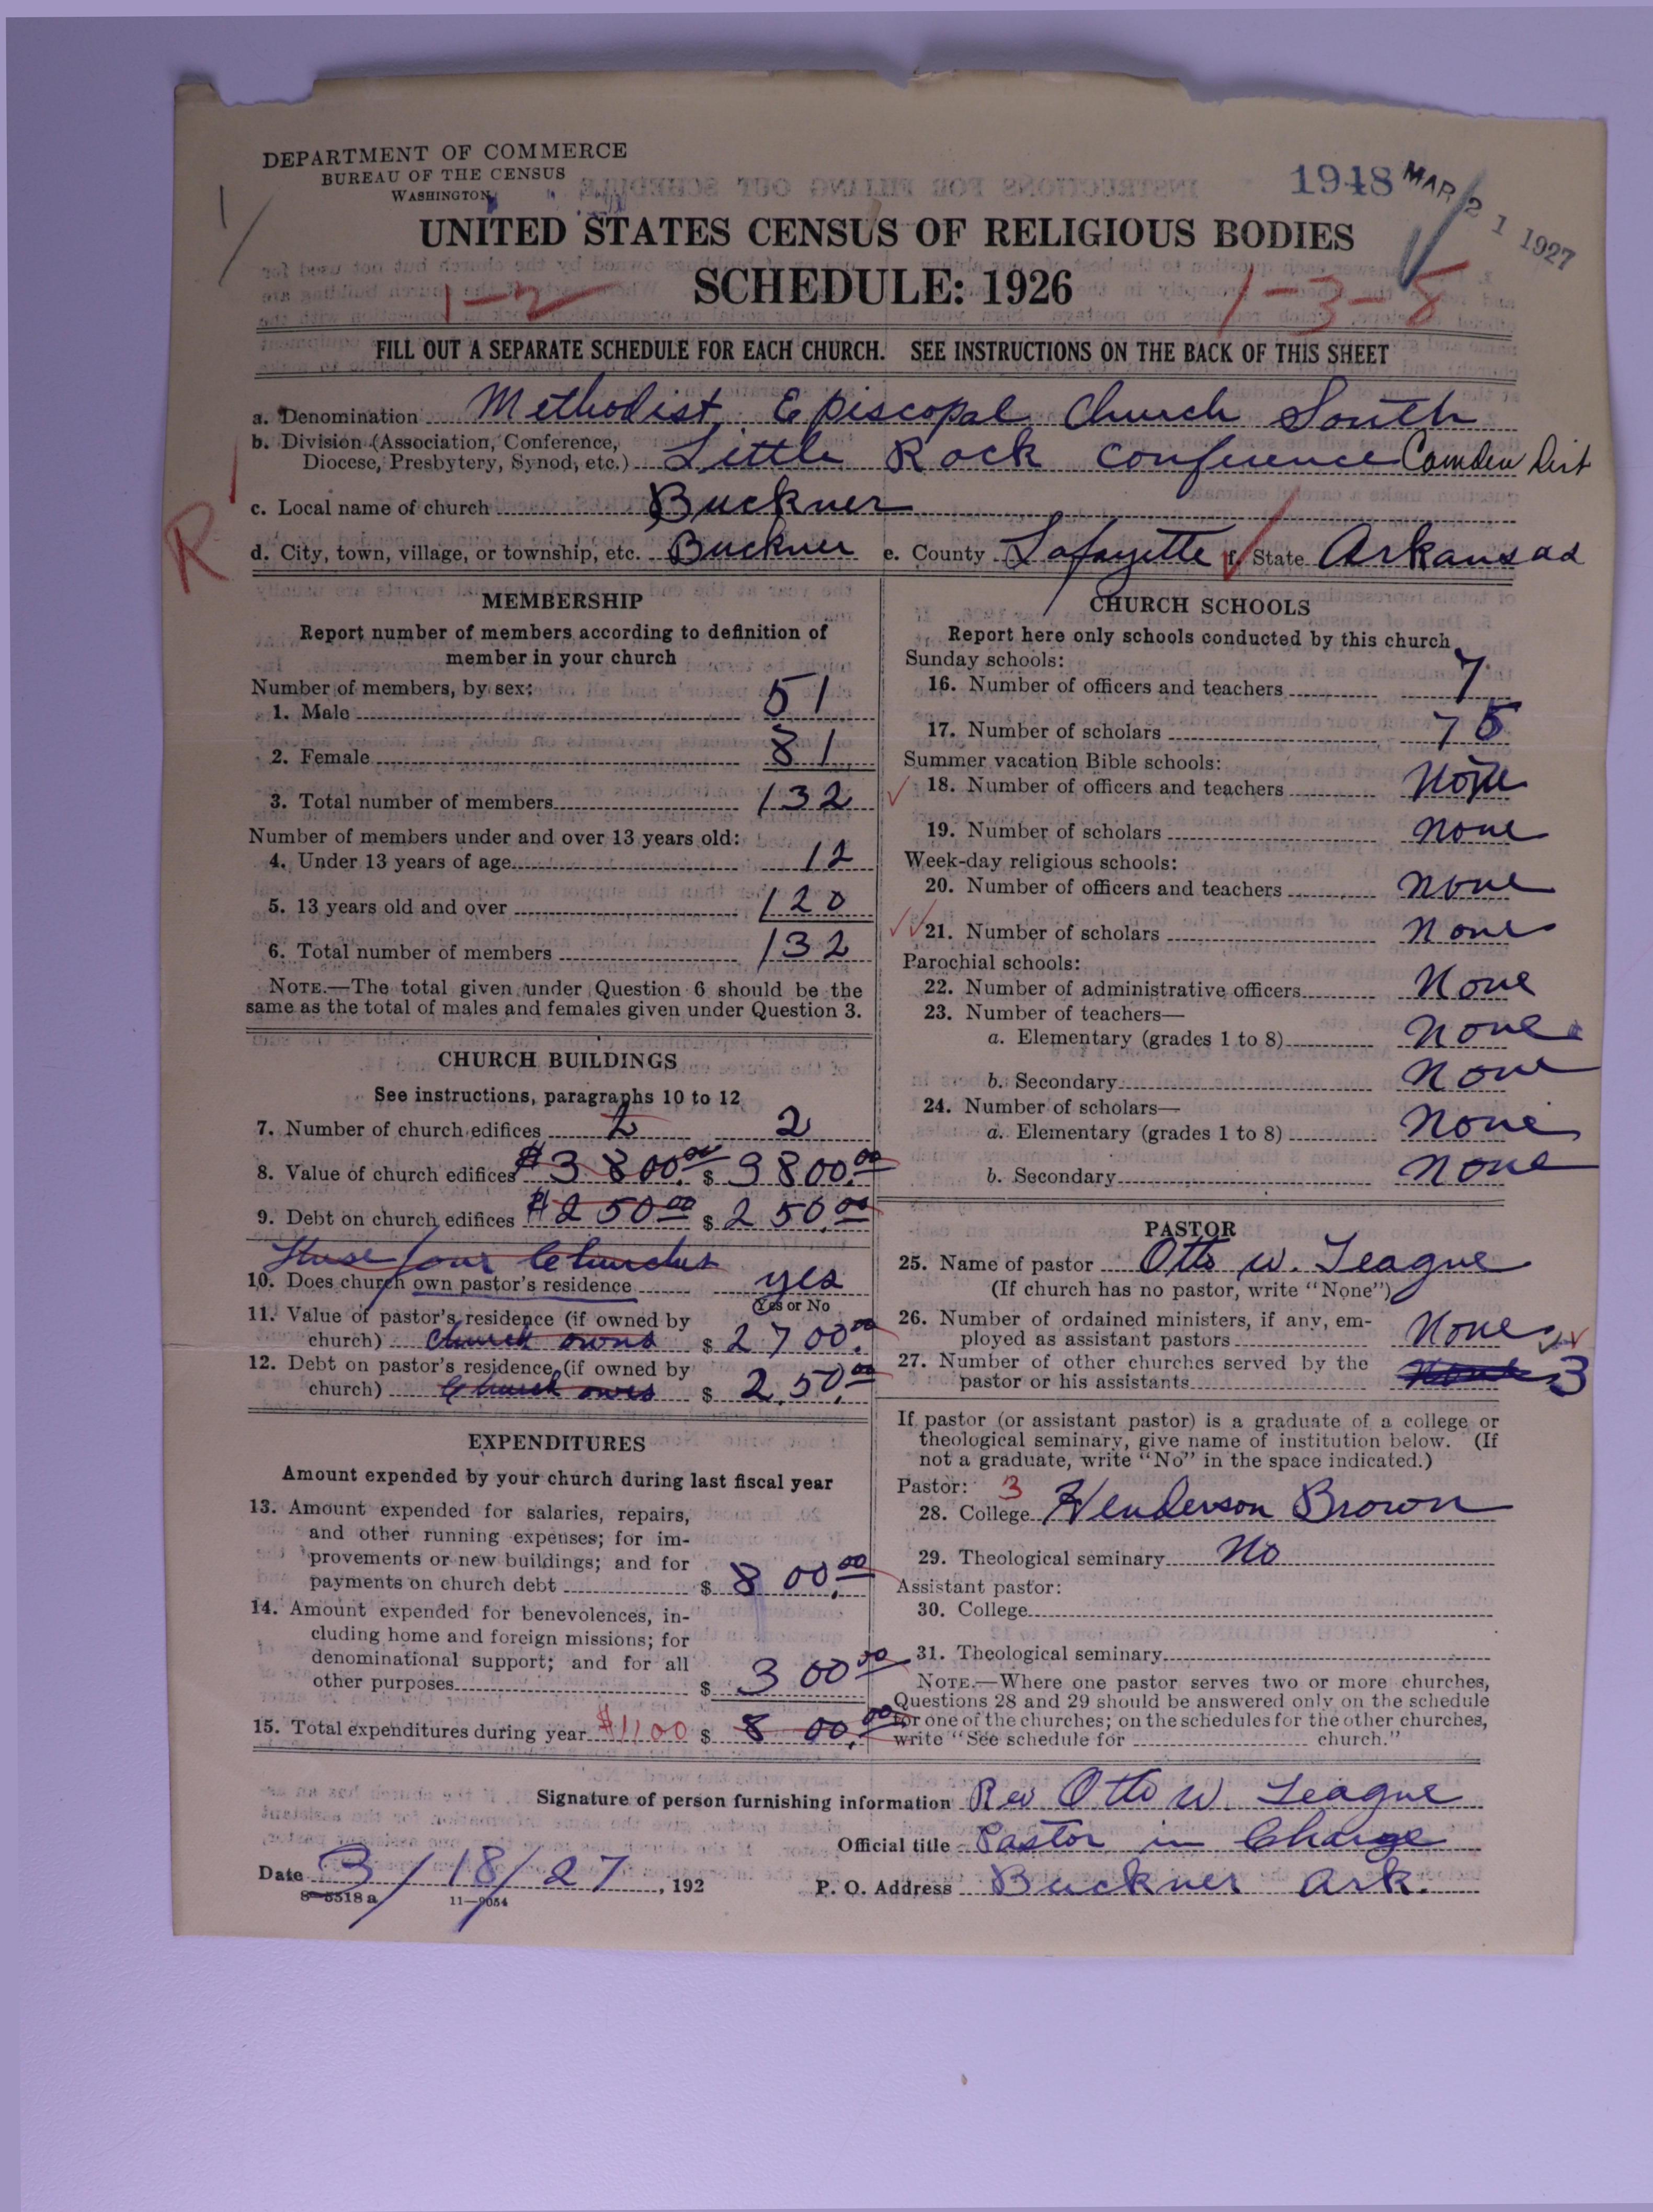 DEPARTMENT OF COMMERCE
BUREAU OF THE CENSUS
WASHINGTON
1948 MAR 21 1927
UNITED STATES CENSUS OF RELIGIOUS BODIES
SCHEDULE: 1926
1-2
1-3-8
FILL OUT A SEPARATE SCHEDULE FOR EACH CHURCH. SEE INSTRUCTIONS ON THE BACK OF THIS SHEET
a. Denomination Methodist Episcopal Church South
b. Division (Association, Conference,
Diocese, Presbytery, Synod, etc.) Little Rock Conference Camden Dist
c. Local name of church Buckner
R
d. City, town, village, or township, etc. Buckner e. County Lafayette f. State Arkansas
MEMBERSHIP
Report number of members according to definition of
member in your church
Number of members, by sex:
1. Male 51
2. Female 81
3. Total number of members 132
Number of members under and over 13 years old:
4. Under 13 years of age 12
5. 13 years old and over 120
6. Total number of members 132
NOTE.—The total given under Question 6 should be the
same as the total of males and females given under Question 3.
CHURCH BUILDINGS
See instructions, paragraphs 10 to 12
7. Number of church edifices 2 2
8. Value of church edifices $3800.00 $ 3800.00
9. Debt on church edifices $250.00 $ 250.00
These four Churches
10. Does church own pastor's residence yes
Yes or No
11. Value of pastor's residence (if owned by
church) Church owns $ 2700.00
12. Debt on pastor's residence (if owned by
church) Church owes $ 250.00
EXPENDITURES
Amount expended by your church during last fiscal year
13. Amount expended for salaries, repairs,
and other running expenses; for im-
provements or new buildings; and for
payments on church debt $ 800.00
14. Amount expended for benevolences, in-
cluding home and foreign missions; for
denominational support; and for all
other purposes $ 300.00
15. Total expenditures during year $1100 $ 800.00
CHURCH SCHOOLS
Report here only schools conducted by this church
Sunday schools:
16. Number of officers and teachers 7
17. Number of scholars 75
Summer vacation Bible schools:
18. Number of officers and teachers None
19. Number of scholars none
Week-day religious schools:
20. Number of officers and teachers none
21. Number of scholars none
Parochial schools:
22. Number of administrative officers None
23. Number of teachers—
a. Elementary (grades 1 to 8) none
b. Secondary none
24. Number of scholars—
a. Elementary (grades 1 to 8) none
b. Secondary none
PASTOR
25. Name of pastor Otto W. Teague
(If church has no pastor, write "None")
26. Number of ordained ministers, if any, em-
ployed as assistant pastors None
27. Number of other churches served by the
pastor or his assistants 3
If pastor (or assistant pastor) is a graduate of a college or
theological seminary, give name of institution below. (If
not a graduate, write "No" in the space indicated.)
Pastor: 3
28. College Henderson Brown
29. Theological seminary No
Assistant pastor:
30. College
31. Theological seminary
NOTE.—Where one pastor serves two or more churches,
Questions 28 and 29 should be answered only on the schedule
for one of the churches; on the schedules for the other churches,
write "See schedule for church."
Signature of person furnishing information Rev Otto W. Teague
Official title Pastor in Charge
Date 3/18/27, 192 P. O. Address Buckner Ark.
8-5518 a 11-9054